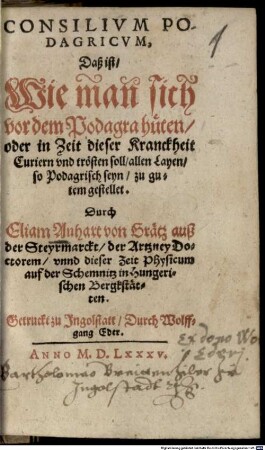 CONSILIVM PO-
DAGRICVM,
Daß ist/
Wie man sich
vor dem Podagra hüten/
oder in Zeit dieser Kranckheit
Curiern vnd trösten soll/allen Layen/
so Podagrisch seyn/zu gu-
tem gestellet.
Durch
Eliam Anhart von Grätz auß
der Steyrmarckt/der Artzney Do-
ctorem/vnnd dieser Zeit Physicum
auf der Schemnitz in Hungeri-
schen Bergkstät-
ten.
Getruckt zu Ingolstatt/Durch Wolff-
gang Eder.
ANNO M. D. LXXXV.
Ex dono Wo
Ederj.
Bartholomæus
Ingolstadt